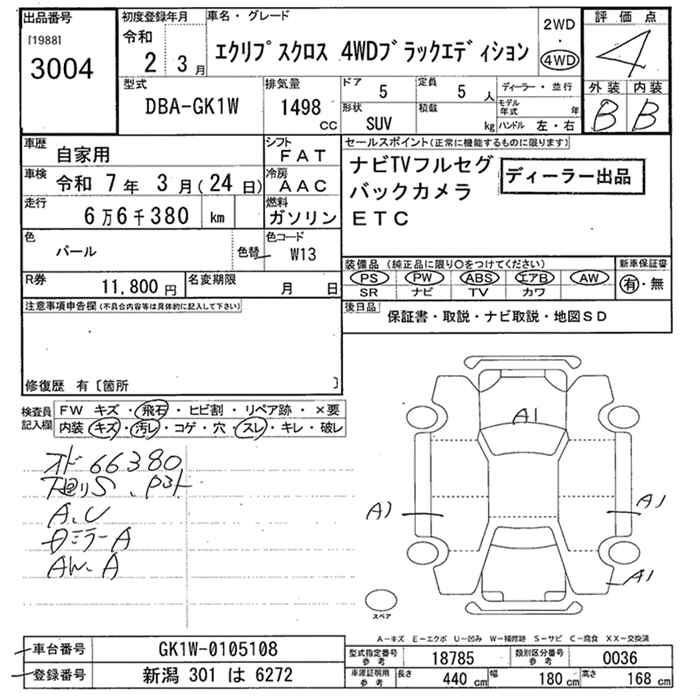 出品番号
[1988]
3004
初度登録年月
令和
2 3月
車名・グレード
エクリプスクロス 4WDブラックエディション
2WD
・
4WD
評価点
4
外装 内装
B B
型式
DBA-GK1W
排気量
1498
CC
ドア 5
形状
SUV
定員 5人
積載 kg
ディーラー・並行
モデル年式 年
ハンドル 左・右
車歴 自家用
シフト
FAT
車検 令和 7年 3月(24日)
冷房
AAC
走行 6万6千380 km
燃料
ガソリン
色
パール
色替
色コード
W13
R券
11,800円
名変期限
月 日
セールスポイント(正常に機能するものに限ります)
ナビTVフルセグ
バックカメラ
ETC
ディーラー出品
装備品(純正品に限り○をつけてください)
PS PW ABS エアB AW
SR ナビ TV カワ
新車保証書
有・無
後日品
保証書・取説・ナビ取説・地図SD
注意事項申告欄(不具合内容等は具体的に記入して下さい)
修復歴 有〔箇所 〕
検査員記入欄
FW キズ・飛石・ヒビ割・リペア跡・×要
内装 キズ・汚レ・コゲ・穴・スレ・キレ・破レ
オド66380
A、U
ミラーA
AW、A
A1
A1
A1
A1
スペア
A-キズ E-エクボ U-凹み W-補修跡 S-サビ C-腐食 XX-交換済
車台番号 GK1W-0105108
登録番号 新潟 301 は 6272
型式指定番号
参考
18785
類別区分番号
参考
0036
車庫証明用
参考
長さ 440 cm
幅 180 cm
高さ 168 cm